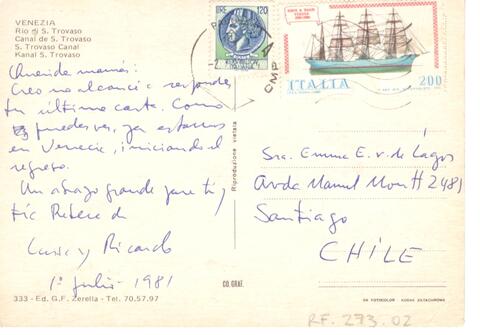 VENEZIA
Rio di S. Trovaso
Canal de S. Trovaso
S. Trovaso Canal
Kanal S. Trovaso
Querida mamá:
Creo no alcancé a responder
tu última carta. Como
puedes ver, ya estamos
en Venecia, iniciando el
regreso.
Un abrazo grande para ti y
tía Rebeca de
y Ricardo
1º julio - 1981
333 - Ed. G.F. Zerella - Tel. 70.57.97
Riproduzione vietata
CO. GRAF.
LIRE 120
ITALIA 200
Sra. Emma E. v. de Lagos
Avda Manuel Montt 2481
Santiago
CHILE
DA FOTOKOLOR KODAK EKTACHROME
RF. 273.02